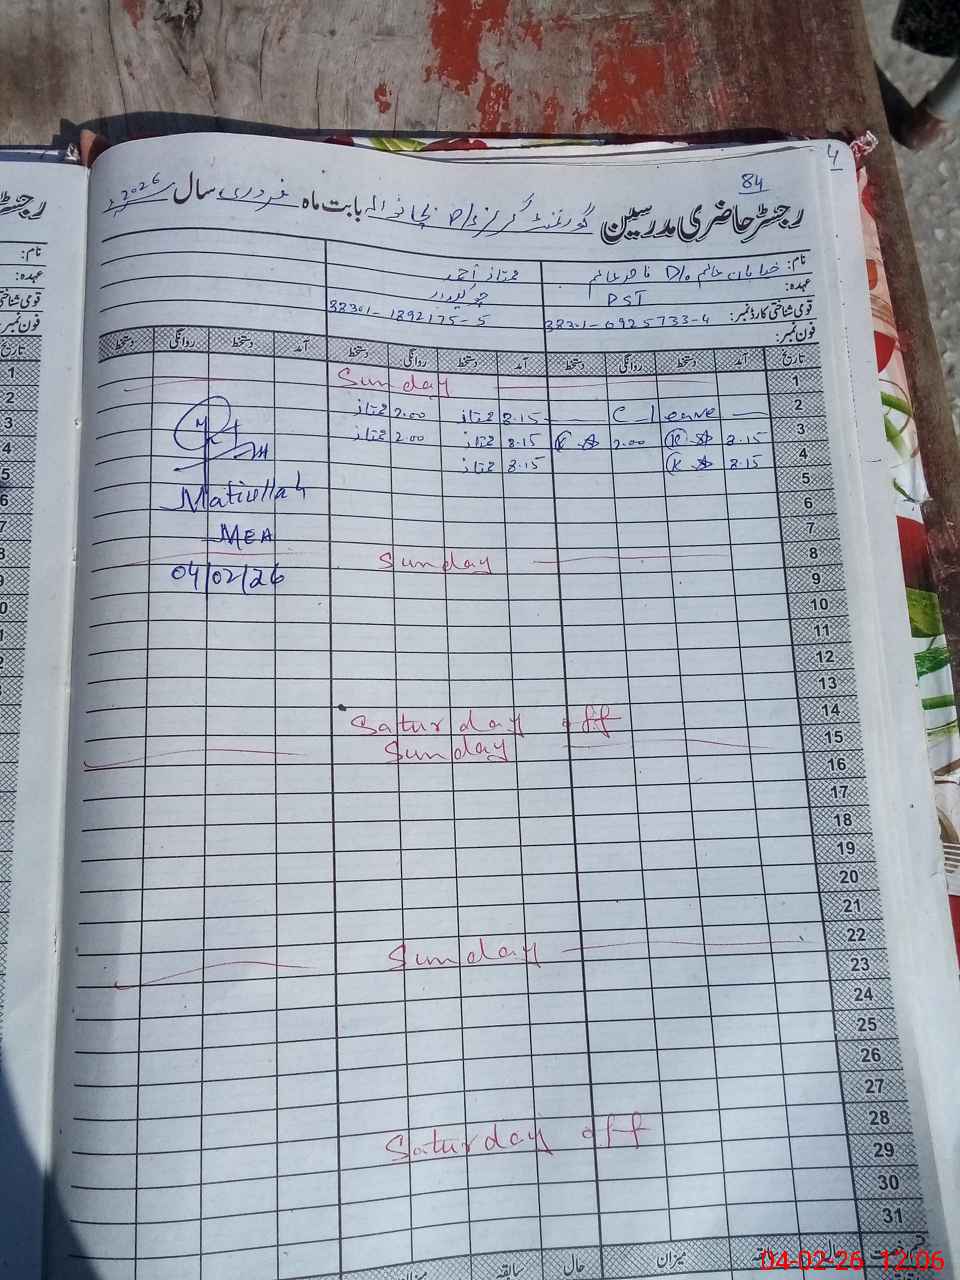 4
84
رجسٹر حاضری مدرسین گورنمنٹ گرلز P/S بابت ماہ فروری سال 2026
نام: خیابان خانم D/o ممتاز احمد
عہدہ: PST چوکیدار
قومی شناختی کارڈ نمبر: 38301-6925733-4 38301-1892175-5
فون نمبر:
تاریخ آمد دستخط روانگی دستخط آمد دستخط روانگی دستخط آمد دستخط روانگی دستخط
1 Sunday
2 C_leave 8.15 ممتاز 2.00 ممتاز
3 8.15 2.00 8.15 ممتاز 2.00 ممتاز
4 8.15 8.15 ممتاز
5
Matiullah
6
MEA
7
8 Sunday
04/02/26
9
10
11
12
13
14 Saturday off
15 Sunday
16
17
18
19
20
21
22 Sunday
23
24
25
26
27
28 Saturday off
29
30
31
میزان حال سابقہ میزان حال
نام:
عہدہ:
قومی شناختی
فون نمبر:
تاریخ
1
2
3
4
5
6
7
8
9
04-02-26 12:06